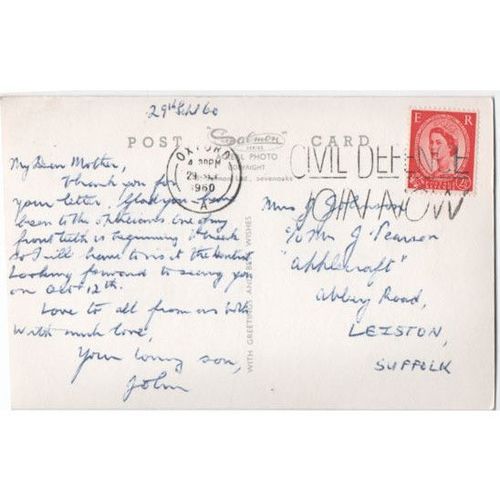 29th Sept 60
POST "Salmon" CARD
SERIES
A REAL PHOTO
COPYRIGHT
sevenoaks
OXFORD
PM
29
1960
A
CIVIL DEFENCE
JOIN NOW
E R
My Dear Mother,
Thank you for
your letter. Glad you have
been to the
front teeth is beginning
so I will have to visit the dentist
Looking forward to seeing you
on Oct 12th.
Love to all from us
With much love,
Your loving son,
John
WITH GREETINGS AND BEST WISHES
Mrs J Johnson
c/o Mr J Pearson
"Applecroft"
Abbey Road,
LEISTON,
SUFFOLK